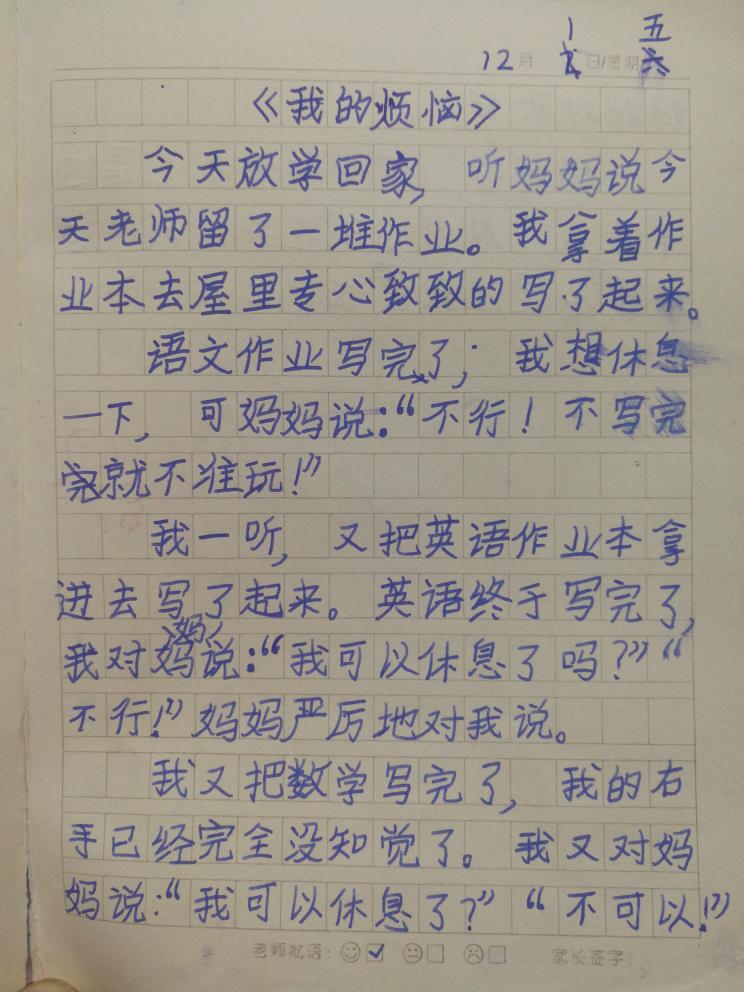 12月1日/星期五
《我的烦恼》
今天放学回家，听妈妈说今
天老师留了一堆作业。我拿着作
业本去屋里专心致致的写了起来。
语文作业写完了；我想休息
一下，可妈妈说：“不行！不写完
就不准玩！”
我一听，又把英语作业本拿
进去写了起来。英语终于写完了，
我对妈妈说：“我可以休息了吗？”“
不行！”妈妈严厉地对我说。
我又把数学写完了，我的右
手已经完全没知觉了。我又对妈
妈说：“我可以休息了？”“不可以！”
老师批语： 家长签字：